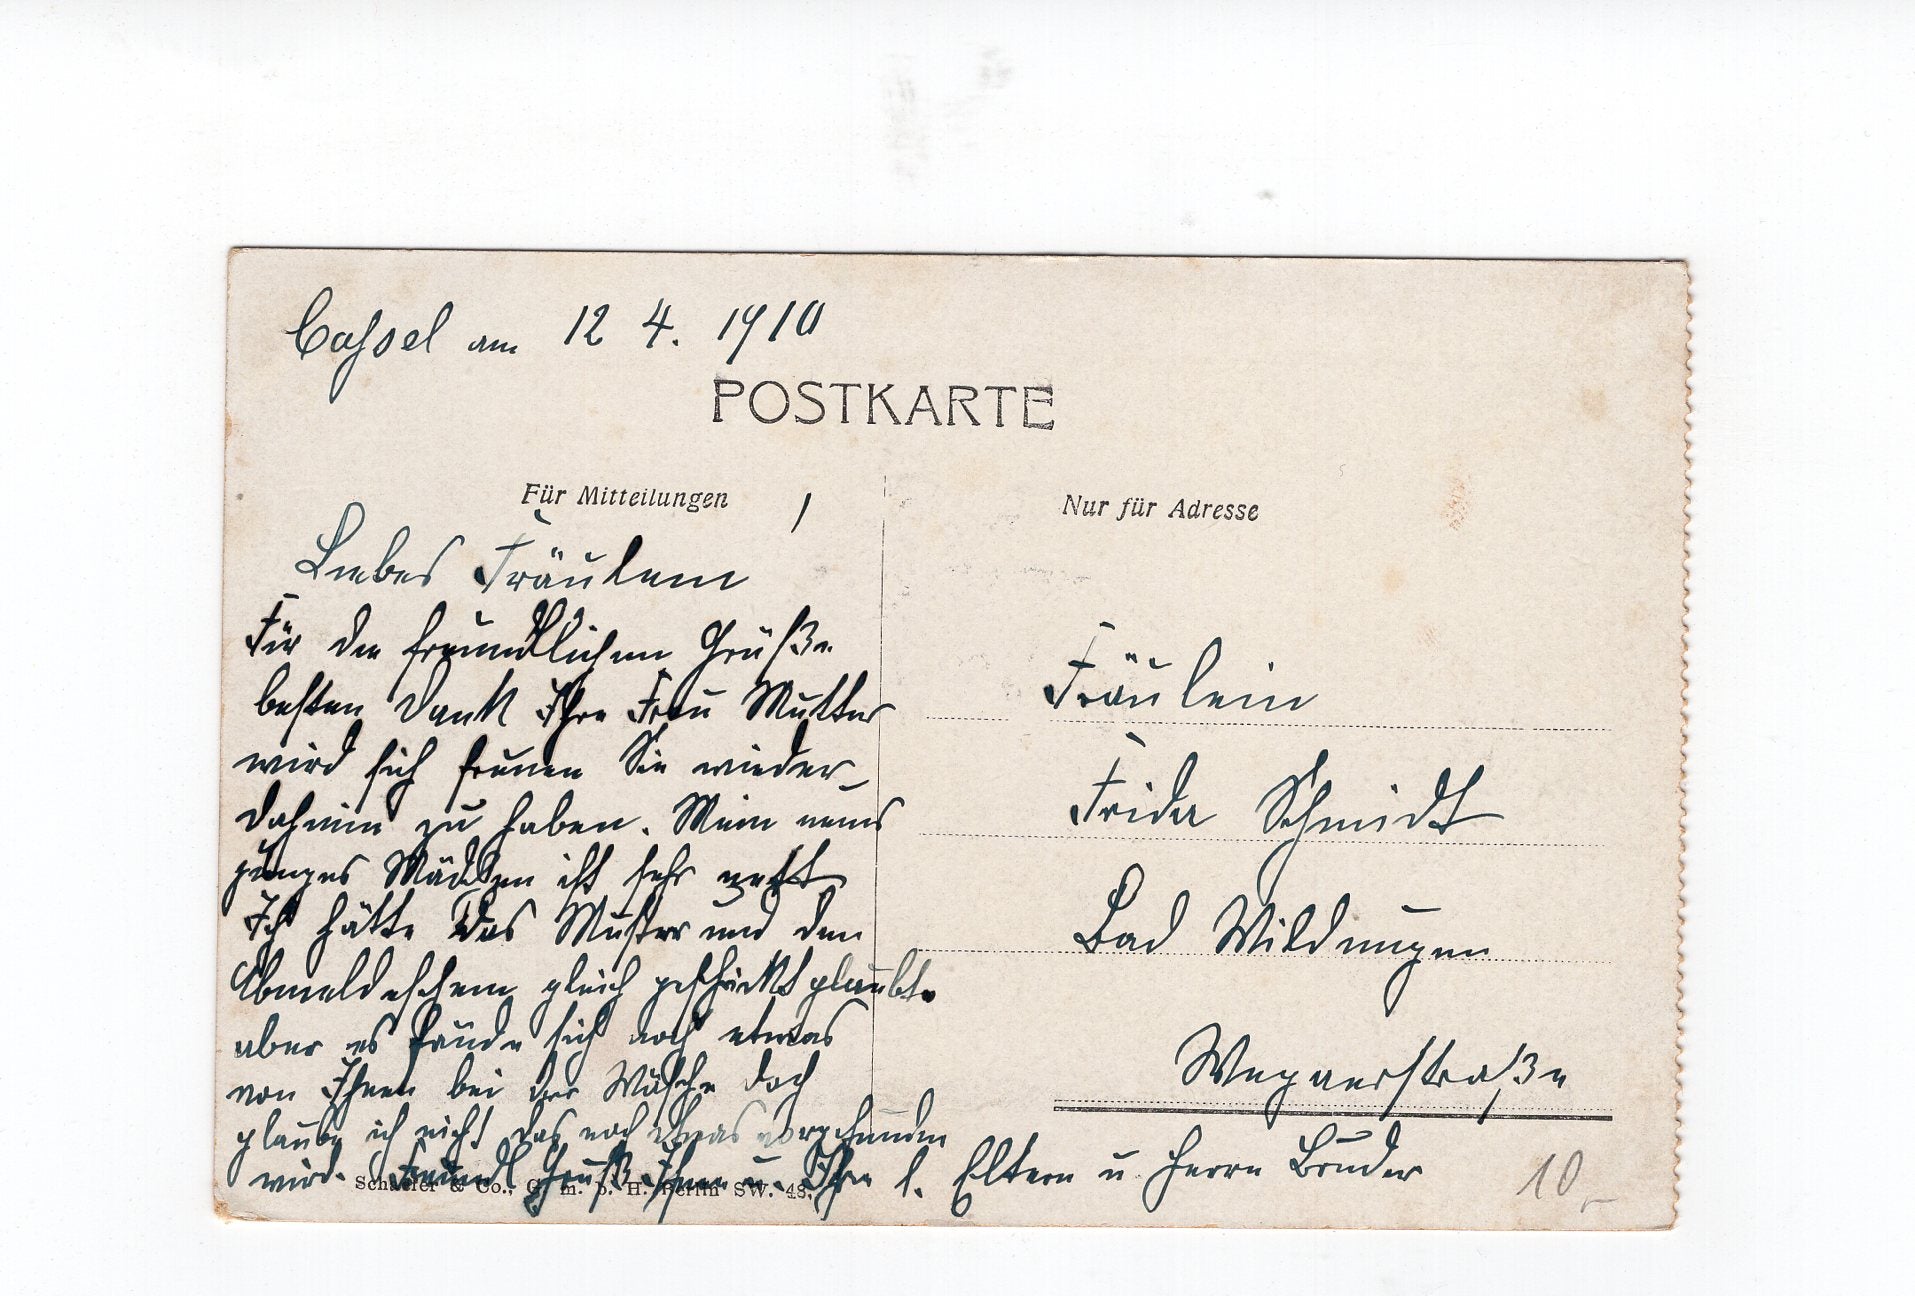 Cassel am 12 4. 1910
POSTKARTE
Für Mitteilungen
Nur für Adresse
Liebes Fräulein
Für die freundlichen Grüße
besten Dank Ihre Frau Mutter
wird sich freuen Sie wieder
daheim zu haben. Mein neues
junges Mädchen ist sehr nett
Ich hätte das Muster und den
Abmeldeschein gleich geschickt glaubte
aber es fände sich noch etwas
von Ihnen bei der Wäsche doch
glaube ich nicht das noch etwas vorgefunden
wird. Freundl Gruß Ihnen u. Ihre l. Eltern u. Herrn Bruder
Fräulein
Frida Schmidt
Bad Wildungen
Wegaerstraße
Schaefer & Co., G. m. b. H. Berlin SW. 48.
10,-